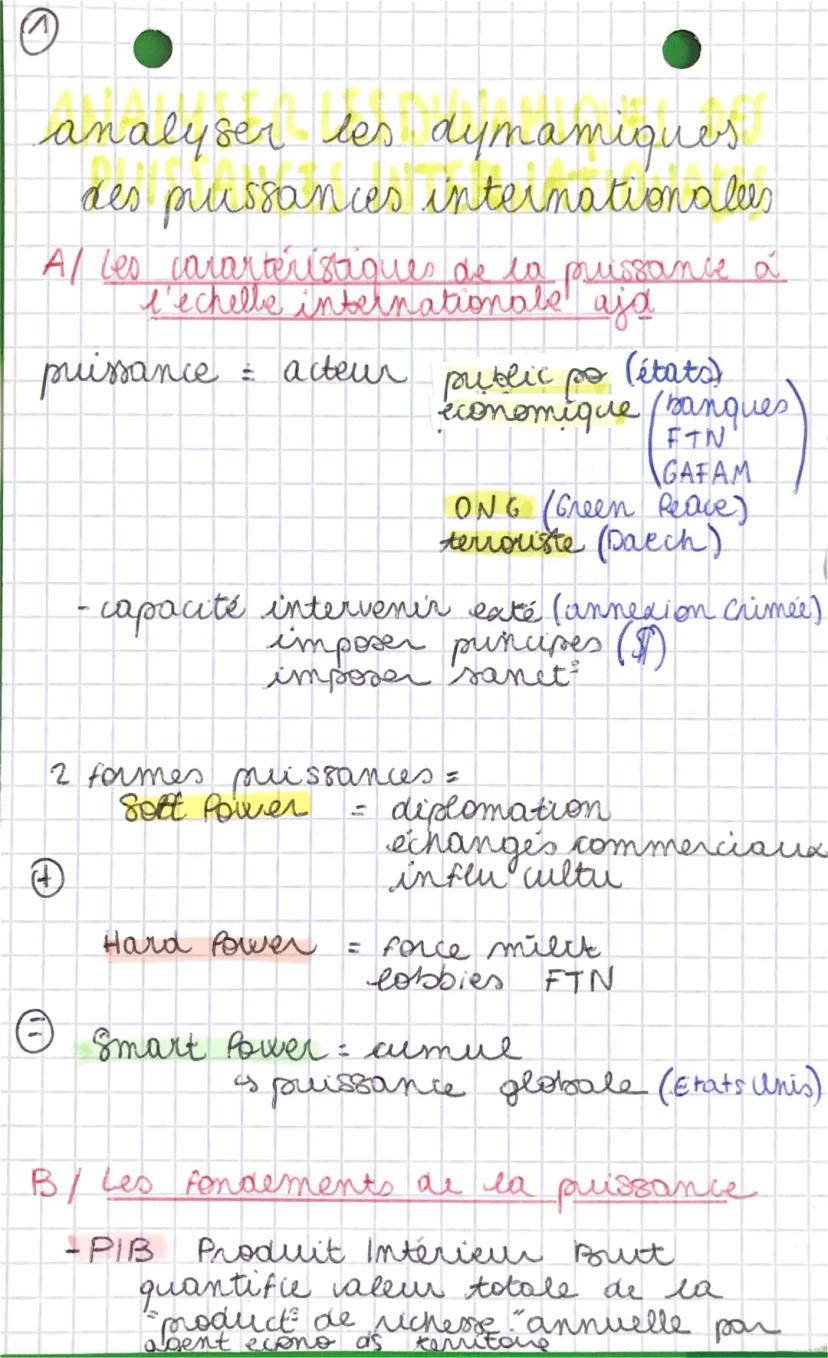 1
analyser les dynamiques
des puissances internationales
A/ Les caractéristiques de la puissance à
l'échelle internationale ajd
puissance = acteur public po (états)
économique (banques
FTN
GAFAM)
ONG (Green Peace)
terroriste (Daech)
- capacité intervenir exté (annexion Crimée)
imposer principes ($)
imposer sanct°
2 formes puissances =
Soft Power = diplomation
échanges commerciaux
influ cultu
+
Hard Power = force milit
lobbies FTN
=
Smart Power = cumul
↳ puissance globale (Etats Unis)
B/ Les fondements de la puissance
- PIB Produit Intérieur Brut
quantifie valeur totale de la
"product° de richesse" annuelle par
agent écono ds territoire